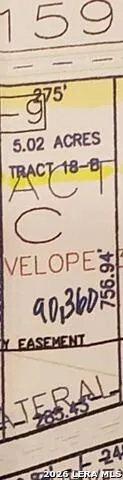 159
275'
-9
5.02 ACRES
TRACT 18-B
ACT
C
VELOPE
90,360
756.94'
Y EASEMENT
ATERAL
285.45'
L
© 2026 LERA MLS